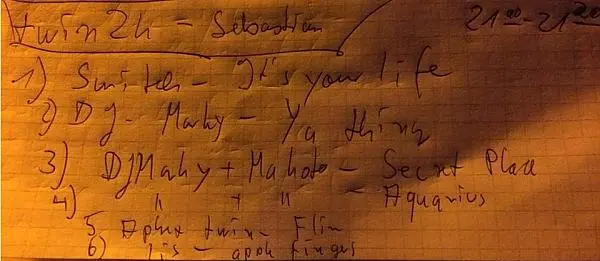 twin2h - Sebastian 21 00 - 21 20
1) Smith - It's your life
2) DJ - Marky - Ya thing
3) DJ Marky + Makoto - Secret Place
4) " + " - Aquarius
5 Aphex twin - Flim
6) - apple fingers